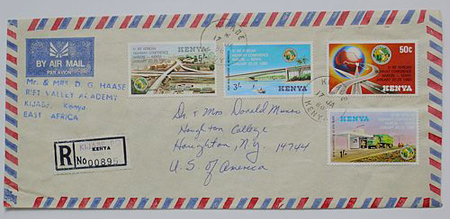 BY AIR MAIL
PAR AVION
Mr. & Mrs D. G. HAASE
RIFT VALLEY ACADEMY
KIJABE, Kenya
EAST AFRICA
R
KENYA
No 00895
5/-
KENYA
3/-
KENYA
50c
KENYA
1/-
KENYA
Dr & Mrs Donald Munro
Houghton College
Houghton, N.Y. 14744
U.S. of America